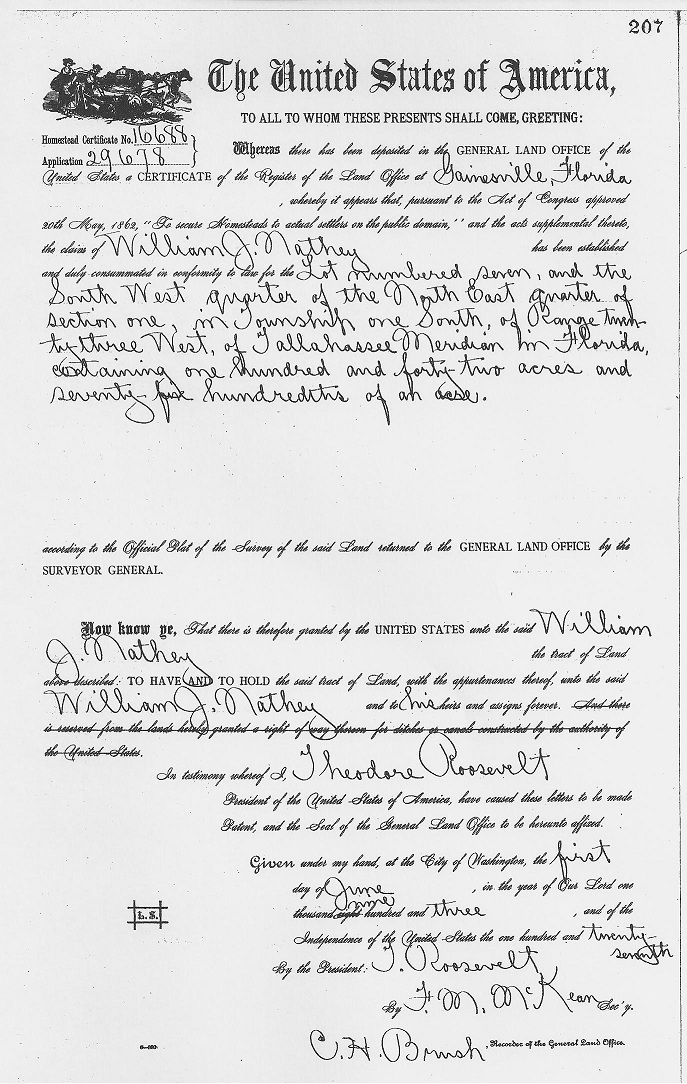 207
The United States of America,
TO ALL TO WHOM THESE PRESENTS SHALL COME, GREETING:
Homestead Certificate No. 16688
Application 29678
Whereas there has been deposited in the GENERAL LAND OFFICE of the
United States a CERTIFICATE of the Register of the Land Office at Gainesville, Florida
, whereby it appears that, pursuant to the Act of Congress approved
20th May, 1862, "To secure Homesteads to actual settlers on the public domain," and the acts supplemental thereto,
the claim of William J. Nathey has been established
and duly consummated in conformity to law for the Lot numbered seven, and the
South West quarter of the North East quarter of
section one, in Township one South, of Range twen-
ty-three West, of Tallahassee Meridian in Florida,
containing one hundred and forty-two acres and
seventy-five hundredths of an acre.
according to the Official Plat of the Survey of the said Land returned to the GENERAL LAND OFFICE by the
SURVEYOR GENERAL.
Now know ye, That there is therefore granted by the UNITED STATES unto the said William
J. Nathey the tract of Land
above described: TO HAVE AND TO HOLD the said tract of Land, with the appurtenances thereof, unto the said
William J. Nathey and to his heirs and assigns forever. And there
is reserved from the lands hereby granted a right of way thereon for ditches or canals constructed by the authority of
the United States.
In testimony whereof I, Theodore Roosevelt
President of the United States of America, have caused these letters to be made
Patent, and the Seal of the General Land Office to be hereunto affixed.
Given under my hand, at the City of Washington, the first
day of June , in the year of Our Lord one
thousand eight nine hundred and three , and of the
Independence of the United States the one hundred and twenty-
seventh
By the President: T. Roosevelt
L.S.
By F. M. McKean Sec'y.
C. H. Brush, Recorder of the General Land Office.